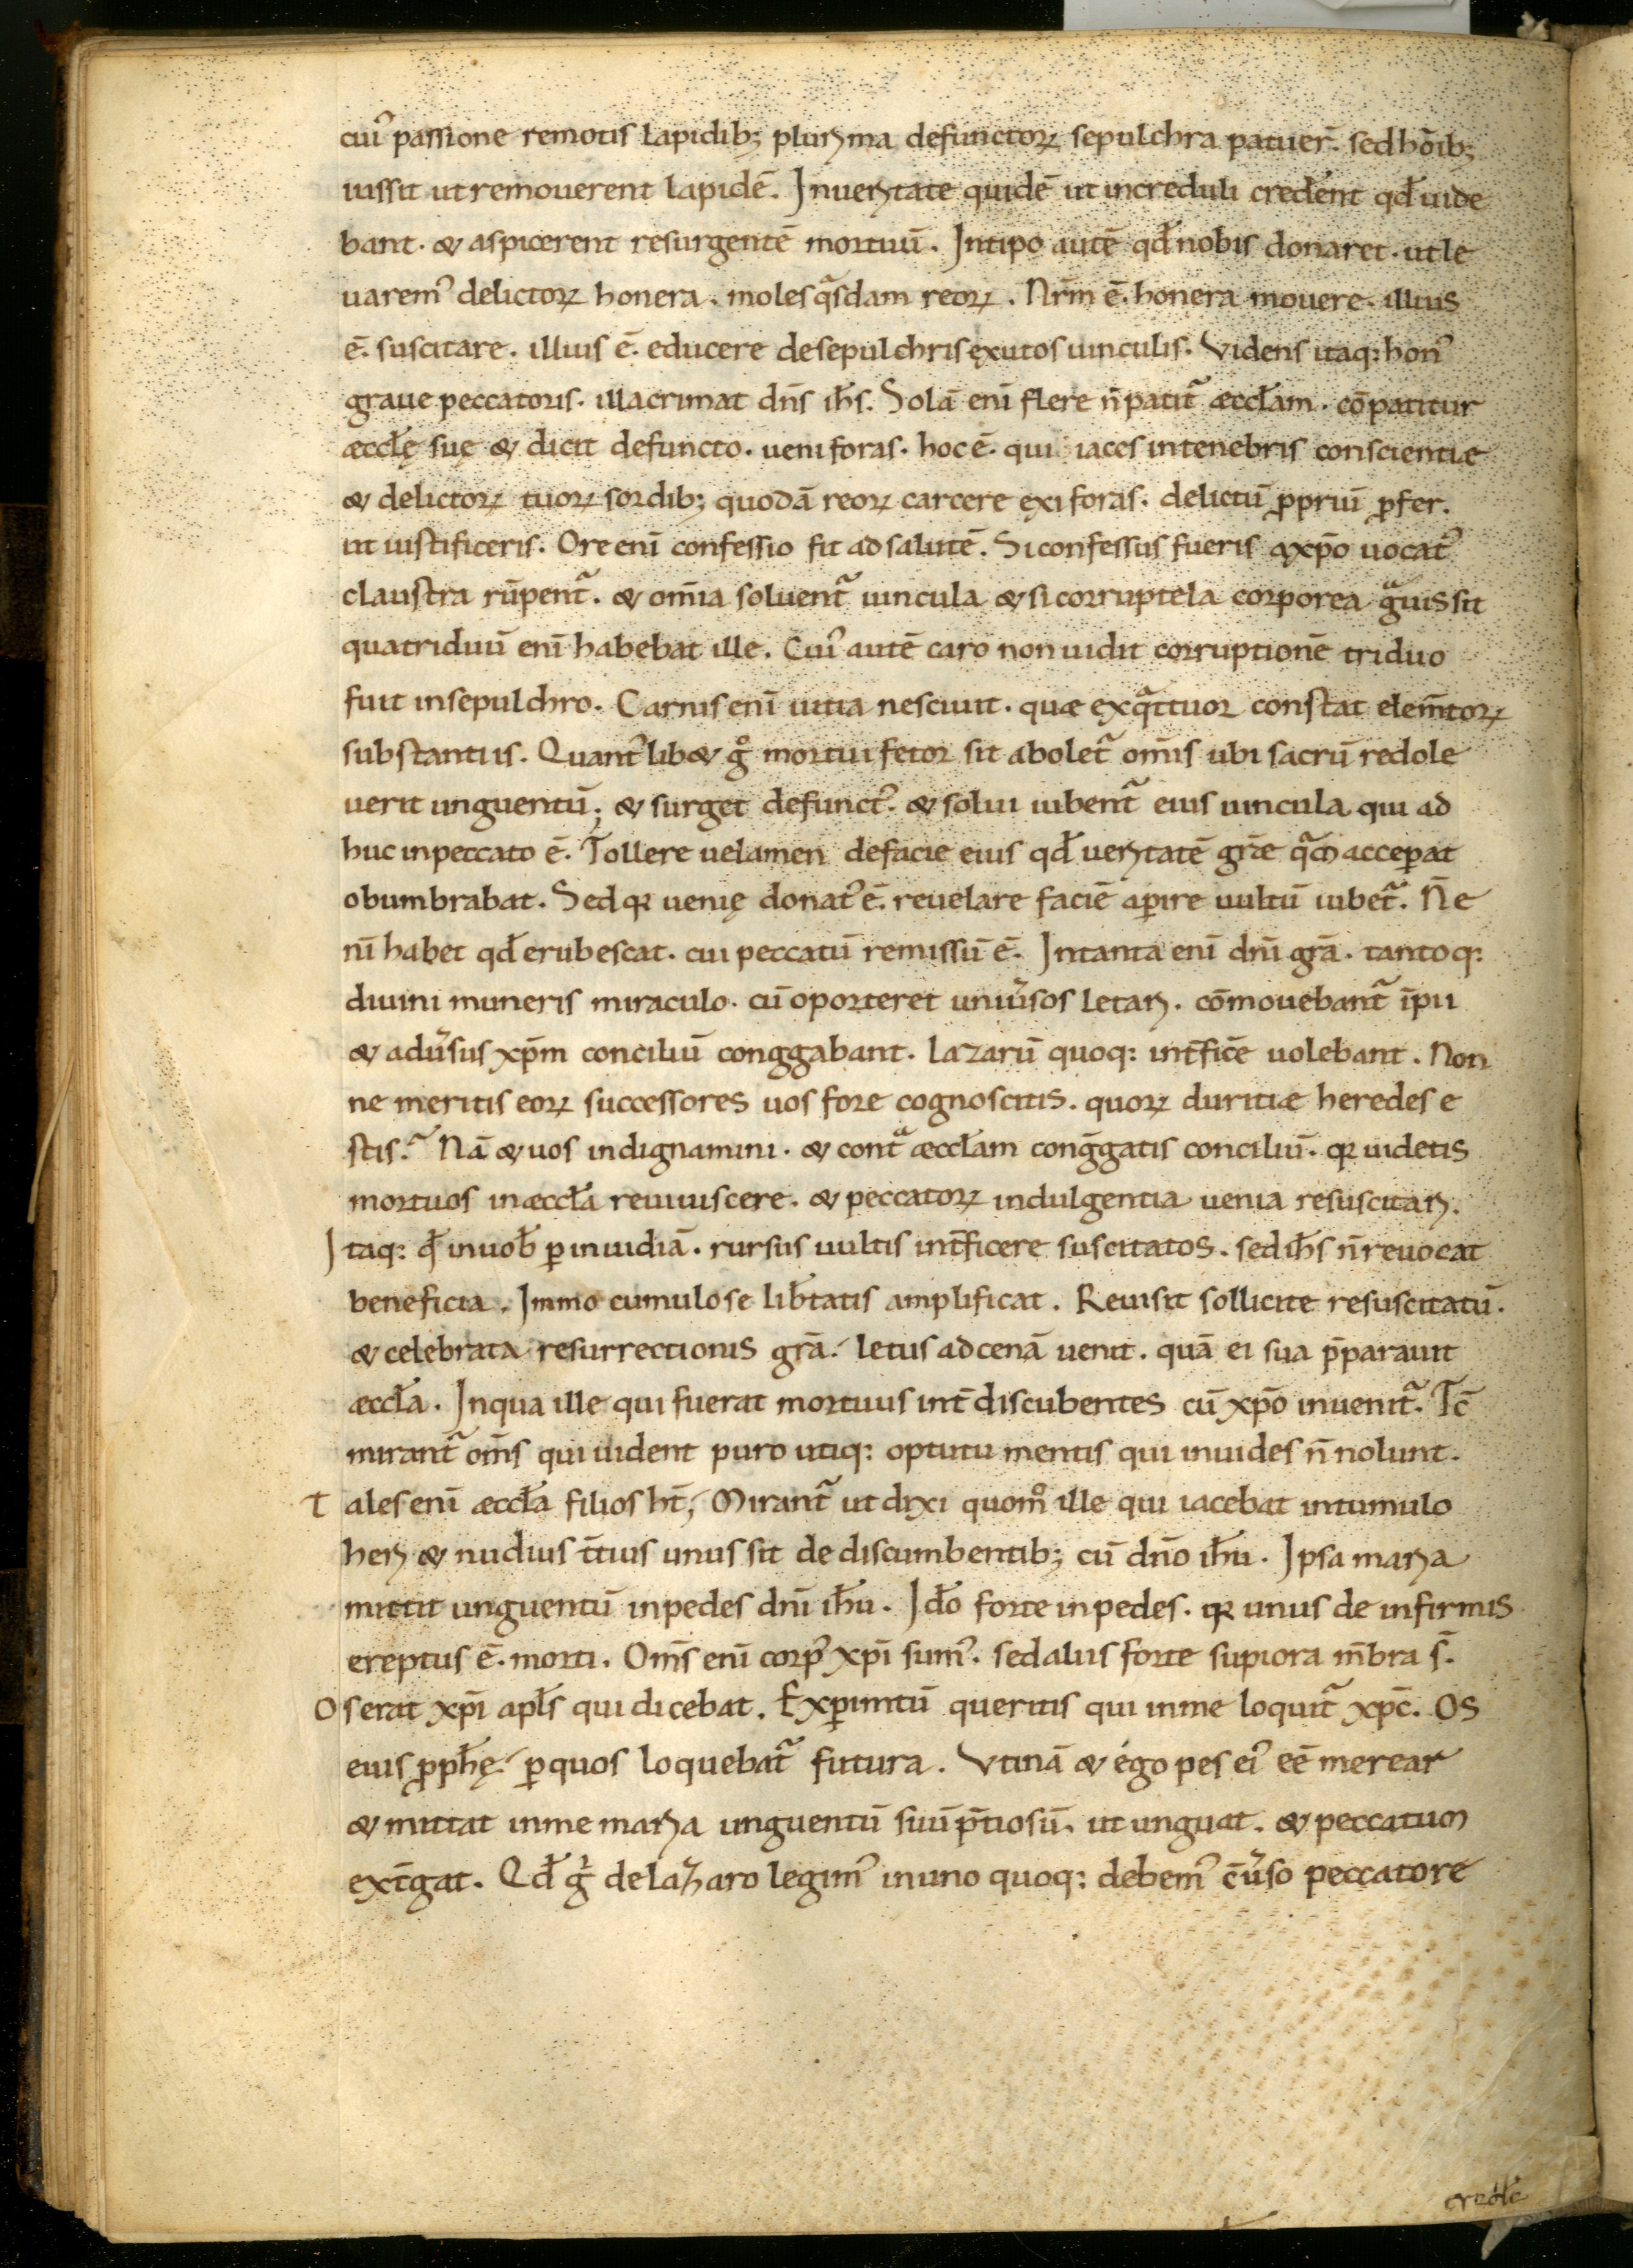 cui᾿ passione remotis lapidib; plurima defunctoꝝ sepulchra patuer̄. sed hoīb;
iussit ut remouerent lapidē. Inueritate quidē ut increduli creder̄ent qđ uide
bant. & aspicerent resurgentē mortuū. Intipo autē qđ nobis donaret. ut le
uarem᾿ delictoꝝ honera. moles qͣsdam reoꝝ. Nr̄m ē. honera mouere. illius
ē. suscitare. illius ē. educere desepulchris exutos uinculis. Videns itaq: hon᾿
graue peccatoris. illacrimat dn̄s ih̄s. Solā enī flere n̄ patit᷑ æccƚam. cōpatitur
æccƚę suę & dicit defuncto. ueni foras. hoc ē. qui iaces intenebris conscientiæ
& delictoꝝ tuoꝝ sordib; quodā reoꝝ carcere exi foras. delictū ꝓpriū ꝓfer.
ut iustificeris. Ore enī confessio fit ad salutē. Si confessus fueris axp̄o uocat᾿
claustra rūpent᷑. & om̄ia soluent᷑ uincula & si corruptela corporea gͣuis sit
quatriduū enī habebat ille. Cui᾿ autē caro non uidit corruptionē triduo
fuit insepulchro. Carnis enī uitia nesciuit. quæ exqͣttuor constat elem̄toꝝ
substantiis. Quant᾿lib& gͦ mortui fetor sit abolet᷑ om̄is ubi sacrū redole
uerit unguentū; & surget defunct᾿. & solui iubent᷑ eius uincula qui ad
huc inpeccato ē. Tollere uelamen defacie eius qđ ueritatē gr̄æ qͣm acceꝑat
obumbrabat. Sed qꝛ uenię donat᾿ ē. reuelare faciē aꝑire uultū iubet᷑. Ne
nī habet qđ erubescat. cui peccatū remissū ē. Intanta enī dn̄i gr̄a. tantoq:
diuini muneris miraculo. cū oporteret uniu᾿sos letari. cōmouebant᷑ īpii
& adu᾿sus xp̄m conciliū conggabant. Lazarū quoq: int̄ficē uolebant. Non
ne meritis eoꝝ successores uos fore cognoscitis. quoꝝ duritiæ heredes e
stis? Nā & uos indignamini. & contͣ æccƚam cong̅gatis conciliū. qꝛ uidetis
mortuos inæccƚa reuiuiscere. & peccatoꝝ indulgentia uenia resuscitari.
Itaq: qđ inuob̄ ꝑ inuidiā. rursus uultis int̄ficere suscitatos. sed ih̄s n̄ reuocat
beneficia. Immo cumulose lib̄tatis amplificat. Reuisit sollicite resuscitatū.
& celebrata resurrectionis gr̄a. letus ad cenā uenit. quā ei sua p̄parauit
æccƚa. Inqua ille qui fuerat mortuus int̄ discubentes cū xp̄o inuenit᷑. Tc̄
mirant᷑ om̄s qui uident puro utiq: optutu mentis qui inuides n̄ nolunt.
Tales enī æccƚa filios ht̄; Mirant᷑ ut dixi quomͦ ille qui iacebat intumulo
heri & nudius t̄tius unus sit de discumbentib; cū dn̄o ih̄u. Ipsa maria
mittit unguentū inpedes dn̄i ih̄u. Idō forte inpedes. qꝛ unus de infirmis
ereptus ē. morti. Om̄s enī corp᾿ xp̄i sum᾿. sed alius forte suꝑiora m̄bra s̄.
Os erat xp̄i apƚs qui dicebat. Exꝑim̄tū queritis qui inme loquit᷑ xp̄c. Os
eius ꝓph̄ę. ꝑ quos loquebat᷑ futura. Vtinā & ego pes ei᾿ eē merear
& mittat inme maria unguentū suū p̄tiosū. ut unguat. & peccatum
ext̄gat. Qđ g͛ delazaro legim᾿ inuno quoq: debem᾿ c̄u᾿so peccatore
credē